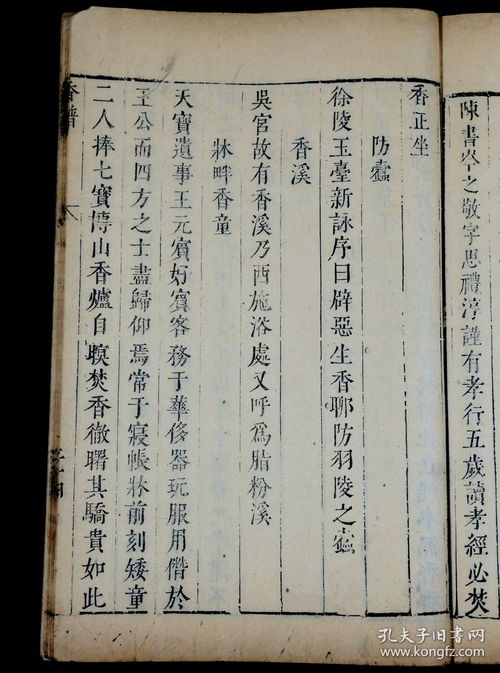 陳書岑之敬字思禮淳謹有孝行五歲讀孝經必焚
香正坐
防蠹
徐陵玉臺新詠序曰辟惡生香聊防羽陵之蠹
香溪
吳宮故有香溪乃西施浴處又呼爲脂粉溪
牀畔香童
天寶遺事王元賓好賓客務于華侈器玩服用僭於
王公而四方之士盡歸仰焉常于寢帳牀前刻矮童
二人捧七寶博山香爐自暝焚香徹曙其驕貴如此
香譜
孔夫子旧书网
www.kongfz.com